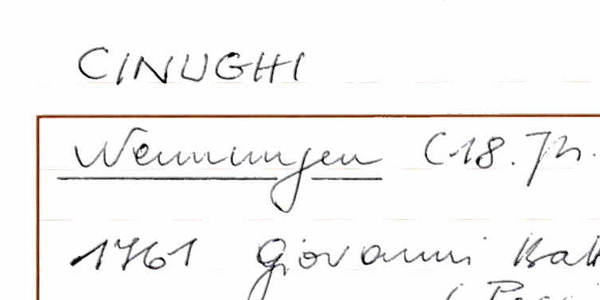 CINUGHI
Nennungen (18. Jh.
1761 Giovanni Bat